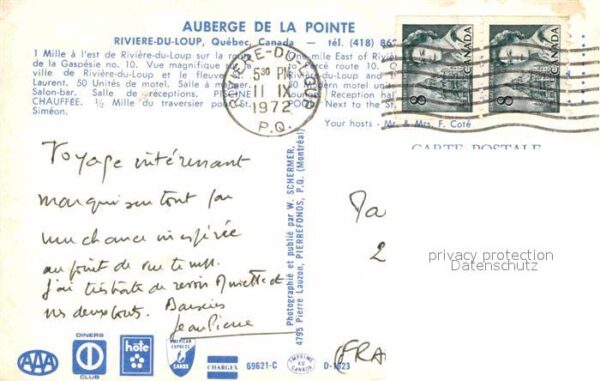 AUBERGE DE LA POINTE
RIVIERE-DU-LOUP, Québec, Canada — tél. (418) 86
1 Mille à l'est de Rivière-du-Loup sur la route
de la Gaspésie no. 10. Vue magnifique
ville de Rivière-du-Loup et le fleuve
Laurent. 50 Unités de motel. Salle à manger.
Salon-bar. Salle de réceptions. PISCINE
CHAUFFÉE. ½ Mille du traversier pour St.
Siméon.
One mile East of Rivière
route 10.
Rivière-du-Loup and
modern motel units
Lounge. Reception hall
POOL. Next to the St.
Your hosts - Mr. & Mrs. F. Coté
RIVIERE-DU-LOUP
5 30 PM
11 IX
1972
P.Q.
CANADA
8
CANADA
8
CARTE POSTALE
Voyage intéressant
marqué surtout par
une chance inespérée
au point de vue temps.
J'ai très hâte de revoir et
nos deux bouts. Baisers
Jean Pierre
Photographié et publié par W. SCHERMER,
4795 Pierre Lauzon, PIERREFONDS, P.Q. (Montréal)
2
(FRA
privacy protection
Datenschutz
AAA
DINERS
CLUB
hôte
AMERICAN EXPRESS
CARDS
CHARGEX
69621-C
IMPRIMÉ
AU
CANADA